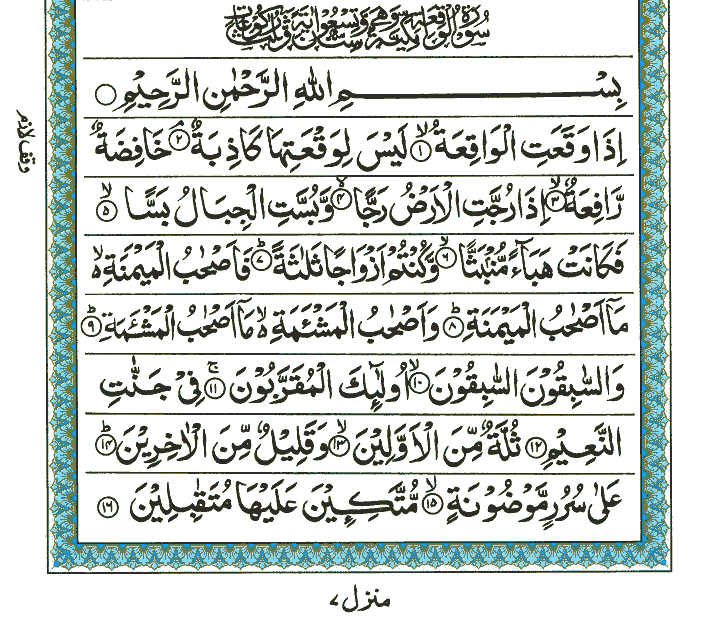 سُوْرَةُ الْوَاقِعَةِ مَكِّيَّةٌ وَّهِيَ سِتٌّ وَّتِسْعُوْنَ اٰيَةً وَّثَلٰثُ رُكُوْعَاتٍ
بِسْمِ اللّٰهِ الرَّحْمٰنِ الرَّحِيْمِ
اِذَا وَقَعَتِ الْوَاقِعَةُ ۙ﴿۱﴾ لَيْسَ لِوَقْعَتِهَا كَاذِبَةٌ ۘ﴿۲﴾ خَافِضَةٌ
وقف لازم
رَّافِعَةٌ ۙ﴿۳﴾ اِذَا رُجَّتِ الْاَرْضُ رَجًّا ۙ﴿۴﴾ وَّبُسَّتِ الْجِبَالُ بَسًّا ۙ﴿۵﴾
فَكَانَتْ هَبَآءً مُّنْۢبَثًّا ۙ﴿۶﴾ وَّكُنْتُمْ اَزْوَاجًا ثَلٰثَةً ؕ﴿۷﴾ فَاَصْحٰبُ الْمَيْمَنَةِ ۙ۬
مَاۤ اَصْحٰبُ الْمَيْمَنَةِ ؕ﴿۸﴾ وَاَصْحٰبُ الْمَشْـَٔمَةِ ۙ۬ مَاۤ اَصْحٰبُ الْمَشْـَٔمَةِ ؕ﴿۹﴾
وَالسّٰبِقُوْنَ السّٰبِقُوْنَ ۙ﴿۱۰﴾ اُولٰٓئِكَ الْمُقَرَّبُوْنَ ۚ﴿۱۱﴾ فِيْ جَنّٰتِ
النَّعِيْمِ ﴿۱۲﴾ ثُلَّةٌ مِّنَ الْاَوَّلِيْنَ ۙ﴿۱۳﴾ وَقَلِيْلٌ مِّنَ الْاٰخِرِيْنَ ؕ﴿۱۴﴾
عَلٰى سُرُرٍ مَّوْضُوْنَةٍ ۙ﴿۱۵﴾ مُّتَّكِـِٕيْنَ عَلَيْهَا مُتَقٰبِلِيْنَ ﴿۱۶﴾
منزل ۷